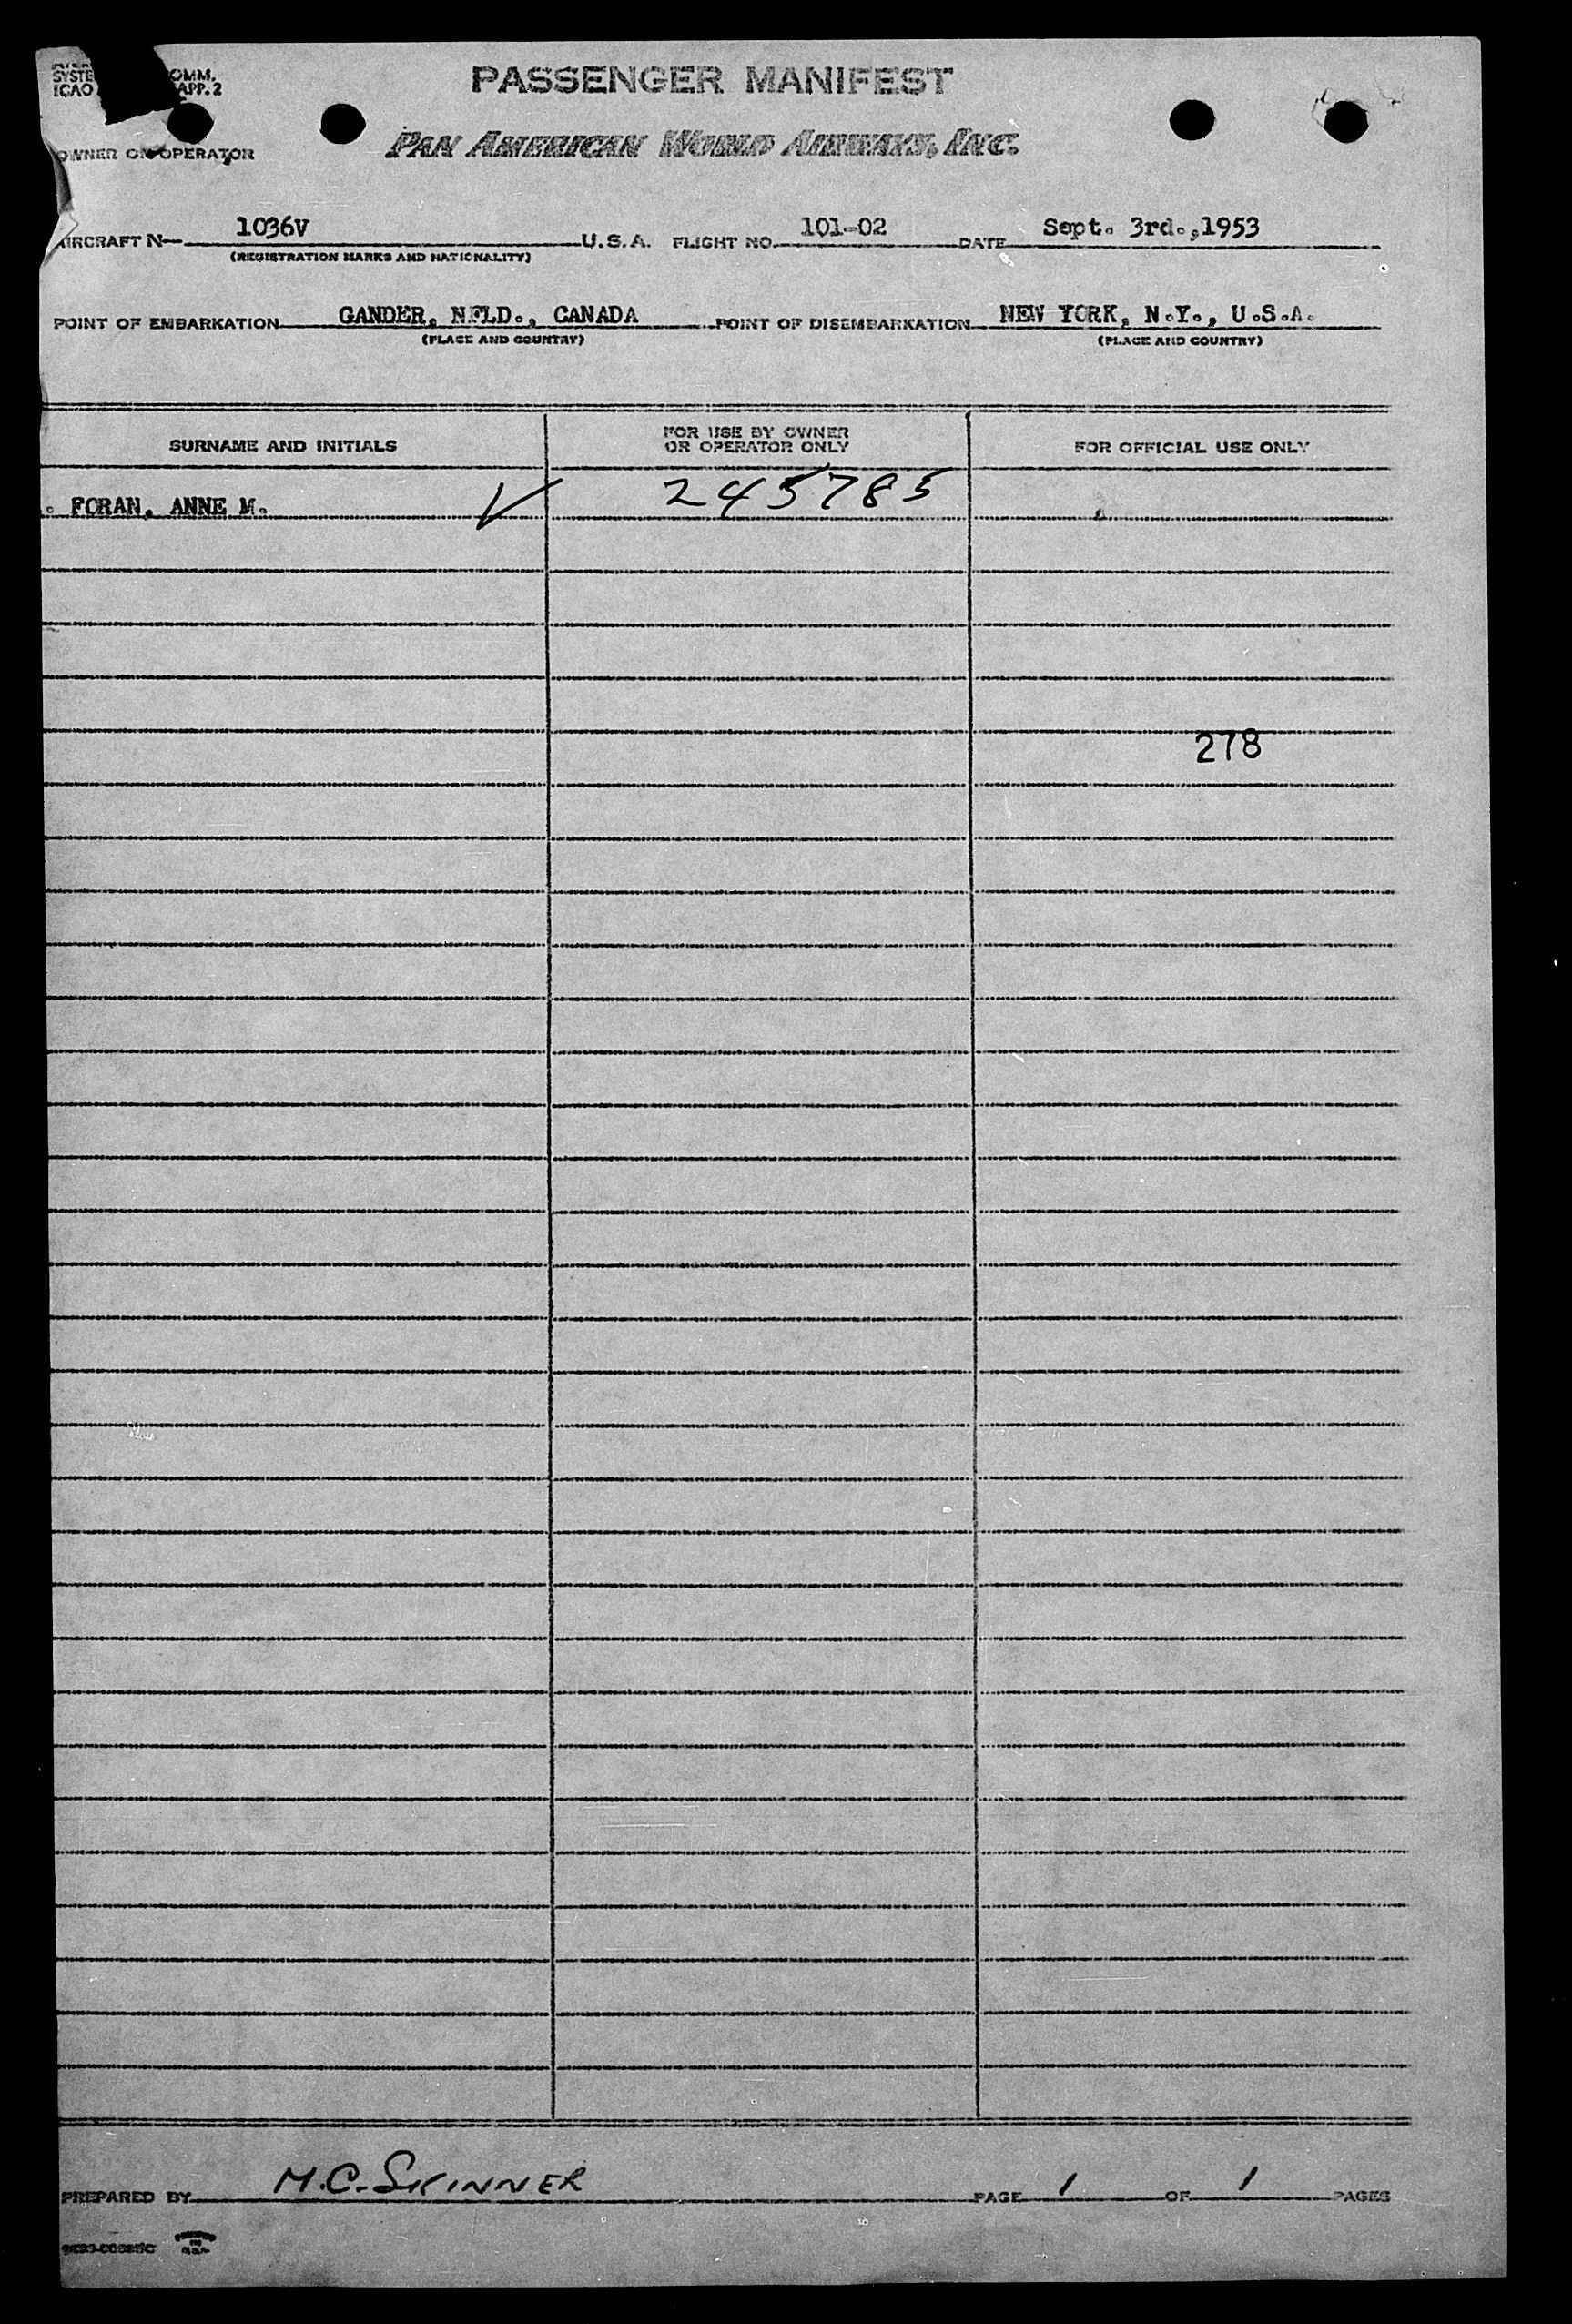 SYSTE OMM.
ICAO APP. 2
PASSENGER MANIFEST
OWNER OR OPERATOR
PAN AMERICAN WORLD AIRWAYS, INC.
AIRCRAFT N- 1036V U.S.A. FLIGHT NO. 101-02 DATE Sept. 3rd.,1953
(REGISTRATION MARKS AND NATIONALITY)
POINT OF EMBARKATION GANDER, NFLD., CANADA POINT OF DISEMBARKATION NEW YORK, N.Y., U.S.A.
(PLACE AND COUNTRY) (PLACE AND COUNTRY)
SURNAME AND INITIALS
FOR USE BY OWNER
OR OPERATOR ONLY
FOR OFFICIAL USE ONLY
. FORAN, ANNE M. ✓ 245785
278
PREPARED BY M.C. SKINNER PAGE 1 OF 1 PAGES